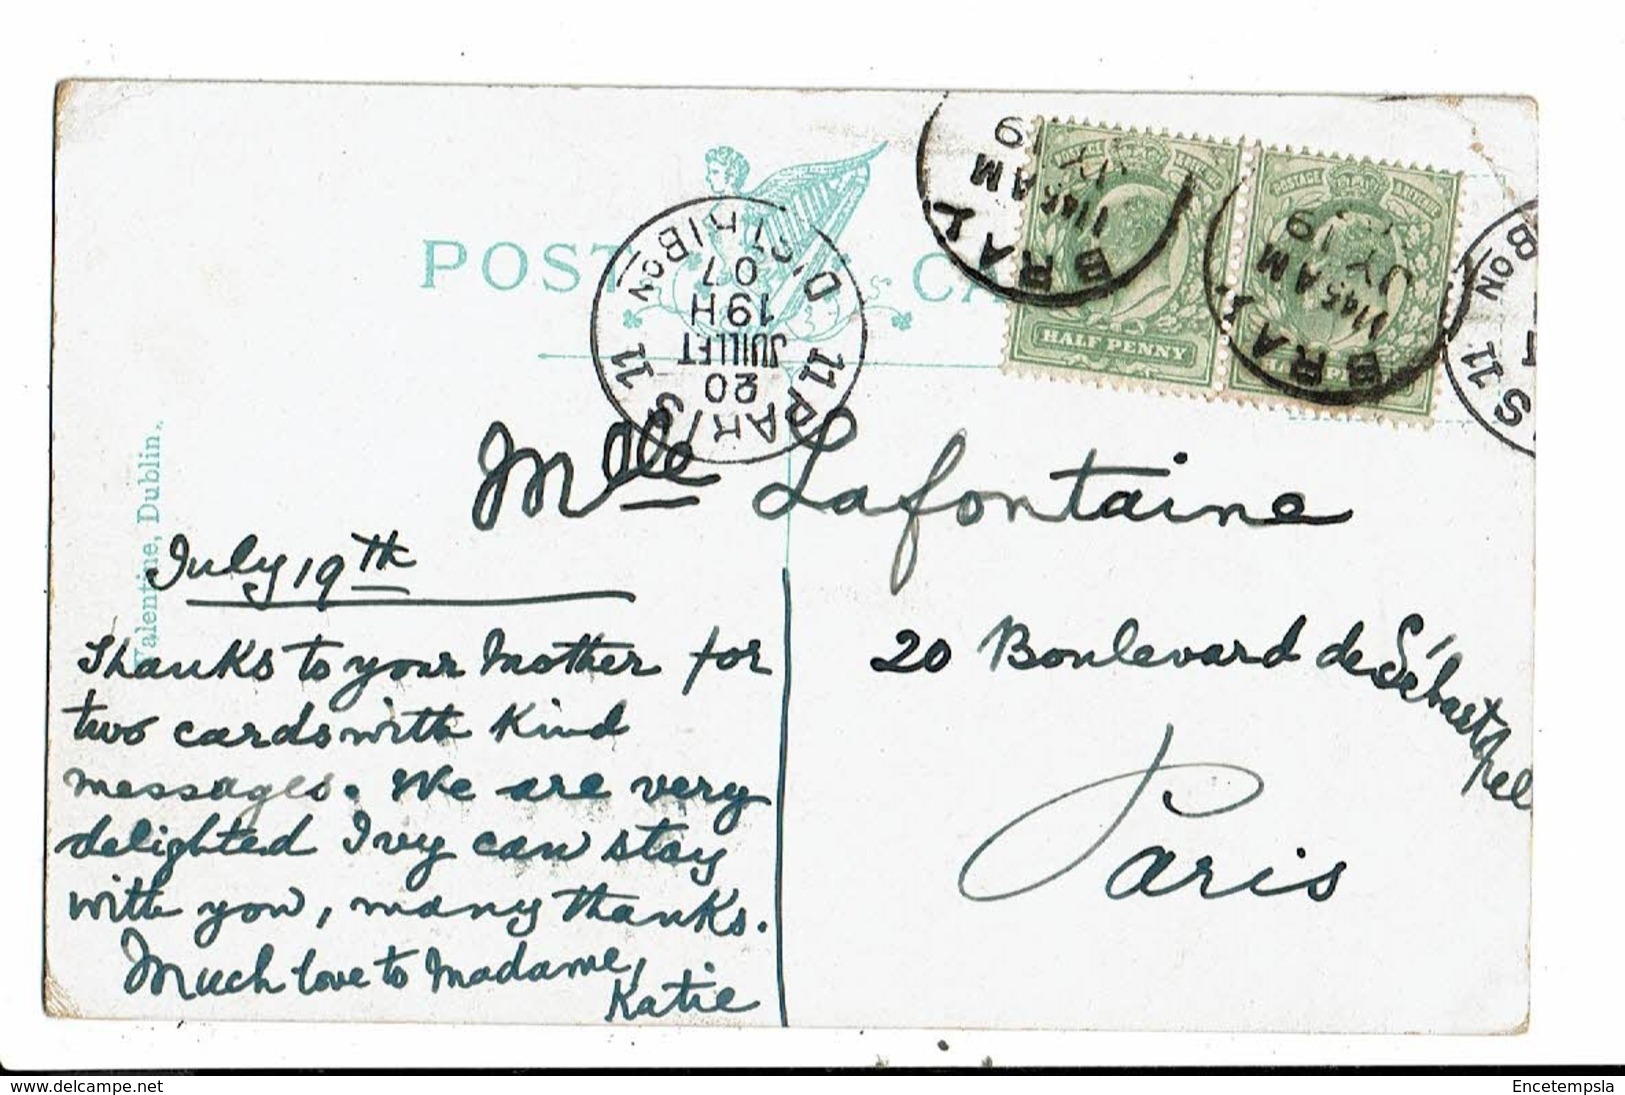 POST CA
HALF PENNY
POSTAGE REVENUE
BRAY
11 45 AM
JY 19
BRAY
11 45 AM
JY 19
PARIS 11
DISTRIBON
20
JUILLET
19H
07
S 11
BON
Valentine, Dublin.
Mlle Lafontaine
20 Boulevard de Sébastopol
Paris
July 19th
Thanks to your Mother for
two cards with kind
messages. We are very
delighted Ivy can stay
with you, many thanks.
Much love to Madame,
Katie
www.delcampe.net
Encetempsla